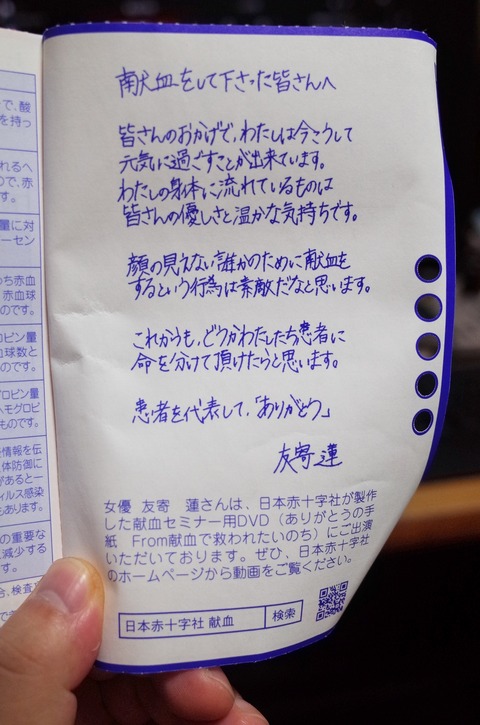 献血をして下さった皆さんへ
皆さんのおかげで、わたしは今こうして
元気に過ごすことが出来ています。
わたしの身体に流れているものは
皆さんの優しさと温かな気持ちです。
顔の見えない誰かのために献血を
するという行為は素敵だなと思います。
これからも、どうかわたしたち患者に
命を分けて頂けたらと思います。
患者を代表して、「ありがとう」
友寄蓮
女優 友寄 蓮さんは、日本赤十字社が製作
した献血セミナー用DVD（ありがとうの手
紙 From献血で救われたいのち）にご出演
いただいております。ぜひ、日本赤十字社
のホームページから動画をご覧ください。
日本赤十字社 献血 検索
で、酸
を持っ
れるへ
ので、赤
す。
量に対
ーセン
うち赤血
赤血球
のです。
ロビン量
血球数と
のです。
ログロビン量
ヘモグロビ
ものです。
情報を伝
体防御に
があると一
ィルス感染
もあります。
の重要な
減少する
す。